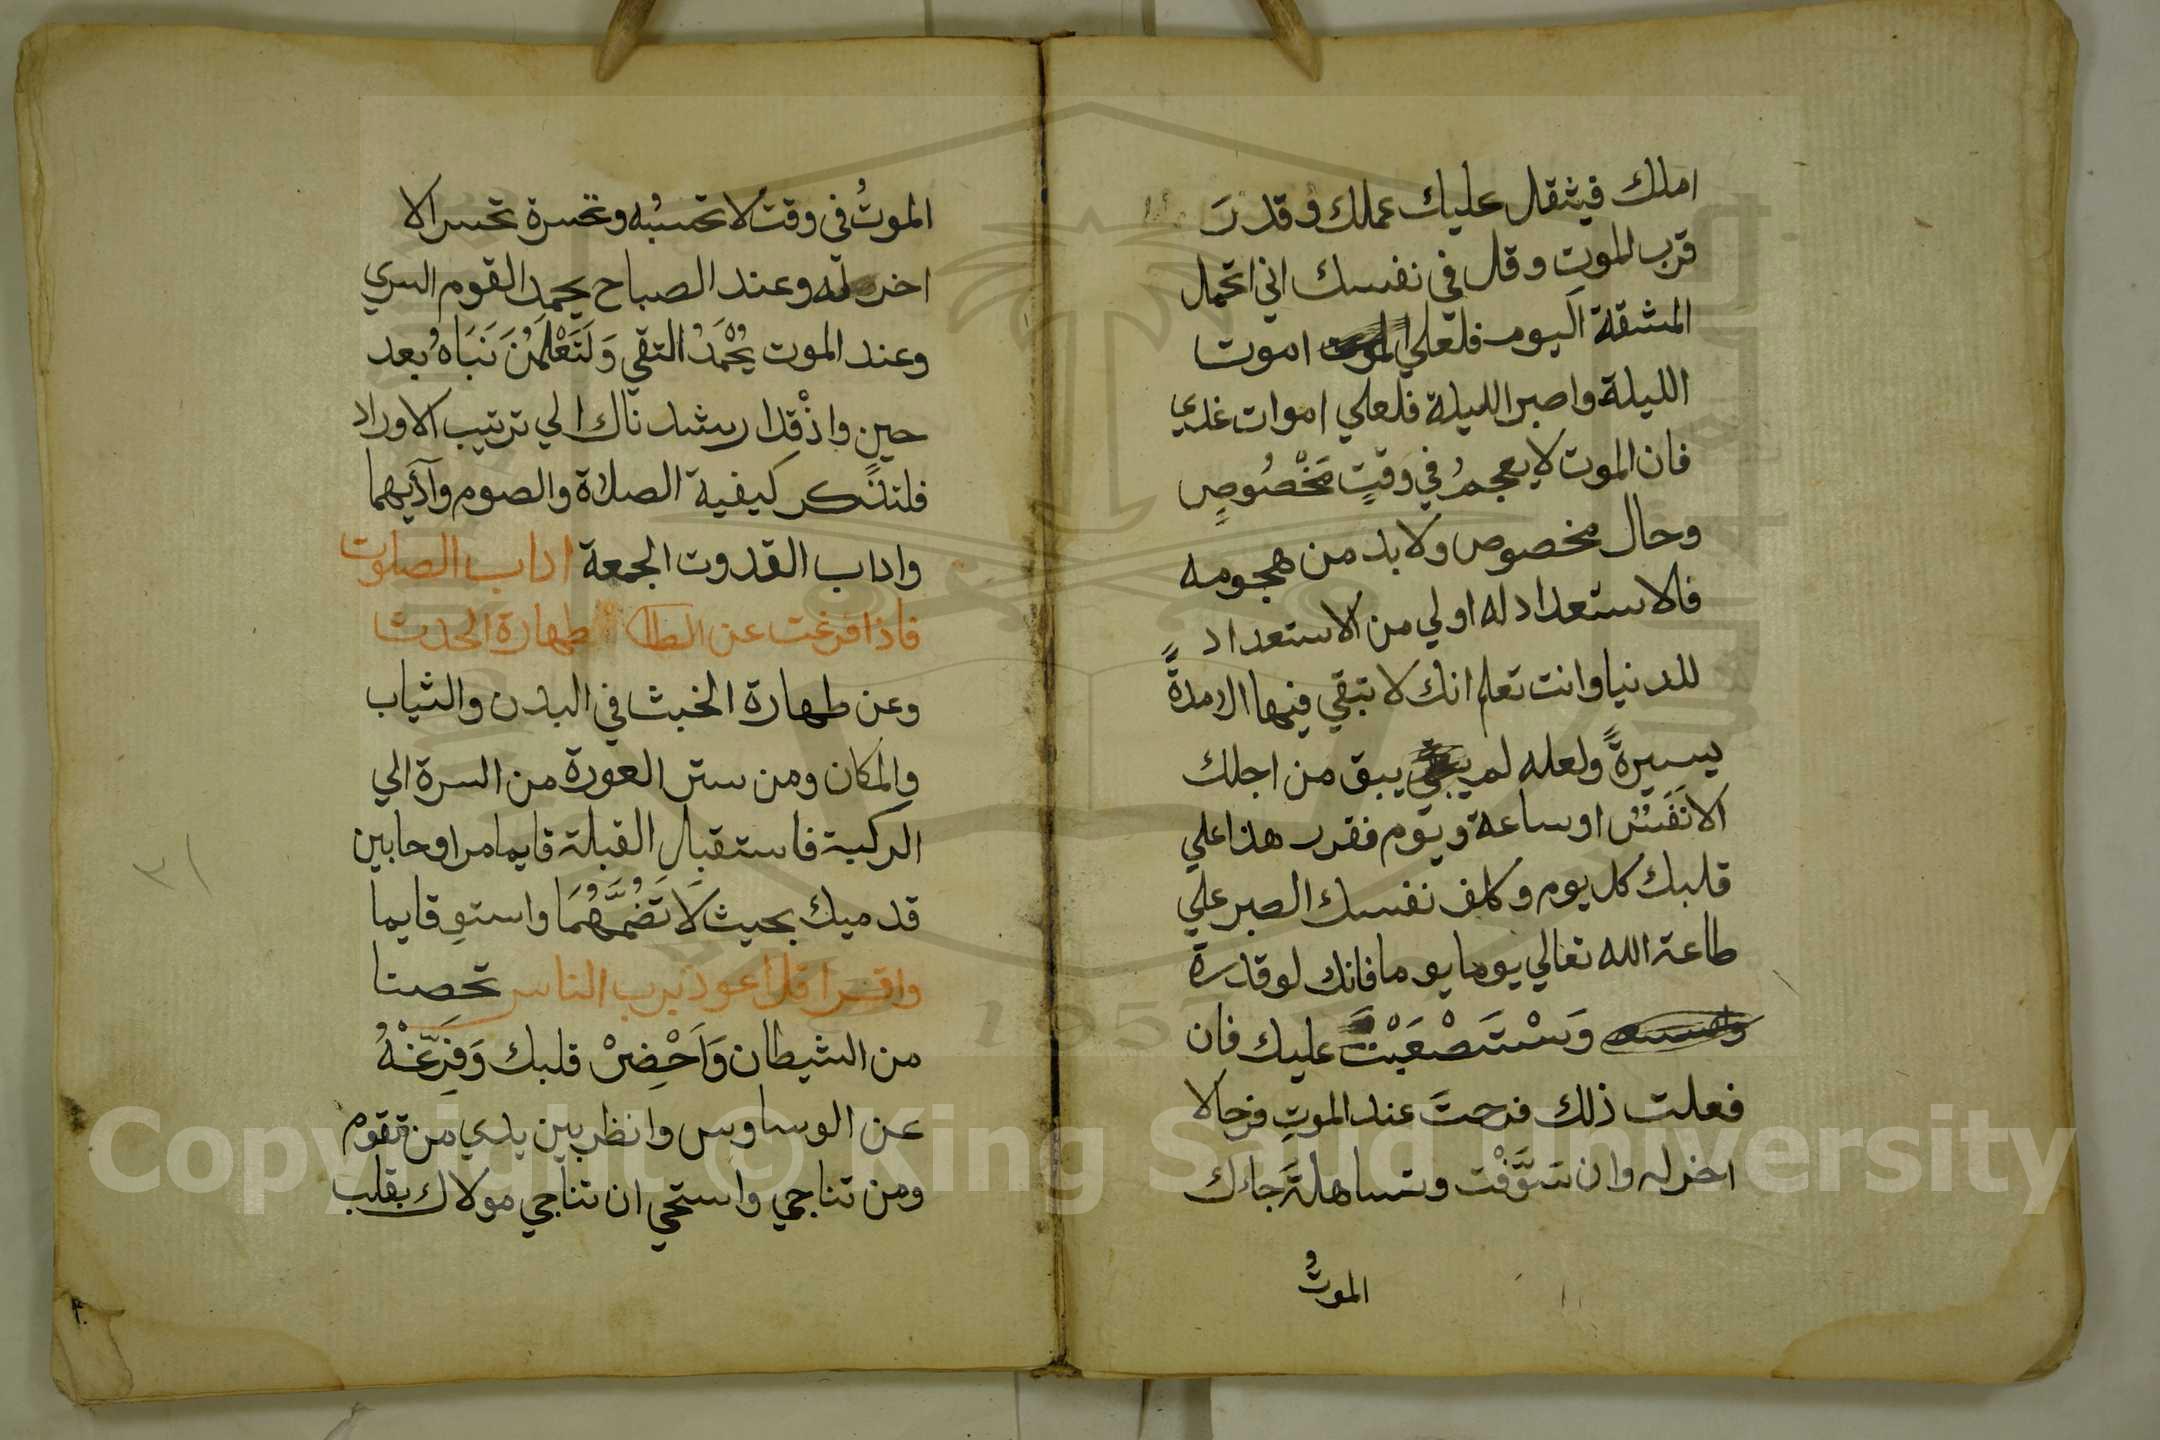 املك فيثقل عليك عملك وقدرَ
قرب الموت وقل في نفسك اني اتحمل
المشقة اليوم فلعلي اموت
الليلة واصبر الليلة فلعلي اموات غدي
فان الموت لا يهجمُ في وَقتٍ مَخْصُوصٍ
وحال مخصوص ولا بد من هجومه
فالاستعداد له اولي من الاستعداد
للدنيا وانت تعلم انك لا تبقي فيها الا مدةً
يسيرةً ولعله لم يبق من اجلك
الا نَفَسٌ او ساعة ويوم فقرر هذا علي
قلبك كل يوم وكلف نفسك الصبر علي
طاعة الله تعالي يوما يوما فانك لو قدرة
وَسْتَصْعَبْتَ عليك فان
فعلت ذلك فرحتَ عند الموتِ فرحا لا
اخر له وان سَوَّفْت وتساهلةَ جاءك
الموتُ
الموتُ في وقت لا تحسبُه وتحسرة تحسرا لا
اخر له وعند الصباح يحمد القوم السري
وعند الموت يُحْمَدُ التقي وَلَتَعْلَمُنَ نَبَاهُ بعد
حين واذْ قد ارشدناك الي ترتيب الاوراد
فلتذكر كيفية الصلاة والصوم وآدابهما
واداب القدوت الجمعة اداب الصلوت
فاذا فرغت عن طهارة الحدث
وعن طهارة الخبث في البدن والثياب
والمكان ومن ستر العورة من السرة الي
الركبة فاستقبل القبلة قايما مراوحا بين
قدميك بحيث لا تَضُمَّهُمَا واستوِ قايما
واقرا قل اعوذ برب الناس تحصنا
من الشيطان وَاَحْضِرْ قلبك وَفَرِّغْهُ
عن الوساوس وانظر بين يدي من تقوم
ومن تناجي واستحي ان تناجي مولاك بقلب
٣١
Copyright © King Saud University
1957